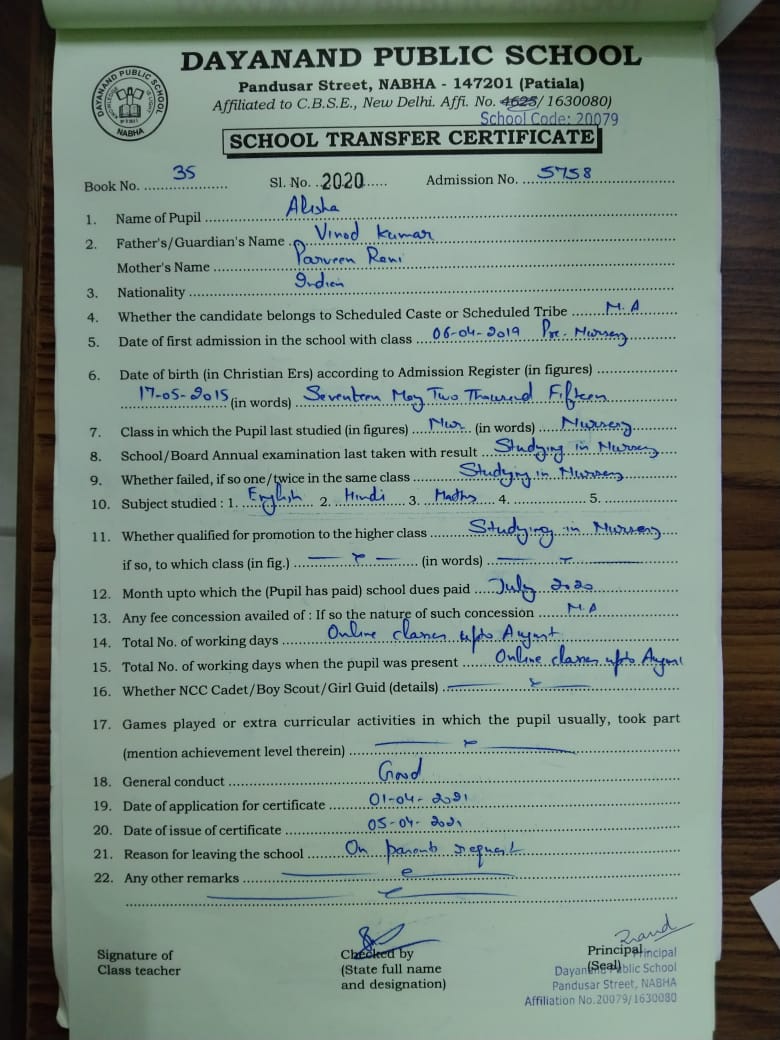 DAYANAND PUBLIC SCHOOL
DAYANAND PUBLIC SCHOOL
NABHA
Pandusar Street, NABHA - 147201 (Patiala)
Affiliated to C.B.S.E., New Delhi. Affi. No. 4625/ 1630080)
School Code: 20079
SCHOOL TRANSFER CERTIFICATE
Book No. 35 Sl. No. 2020 Admission No. 5758
1. Name of Pupil Alisha
2. Father's/Guardian's Name Vinod Kumar
Mother's Name Parveen Rani
3. Nationality Indian
4. Whether the candidate belongs to Scheduled Caste or Scheduled Tribe N.A
5. Date of first admission in the school with class 06-04-2019 Pre. Nursery
6. Date of birth (in Christian Ers) according to Admission Register (in figures)
17-05-2015 (in words) Seventeen May Two Thousand Fifteen
7. Class in which the Pupil last studied (in figures) Nur. (in words) Nursery
8. School/Board Annual examination last taken with result Studying in Nursery
9. Whether failed, if so one/twice in the same class Studying in Nursery
10. Subject studied : 1. English 2. Hindi 3. Maths 4. 5.
11. Whether qualified for promotion to the higher class Studying in Nursery
if so, to which class (in fig.) (in words)
12. Month upto which the (Pupil has paid) school dues paid July 2020
13. Any fee concession availed of : If so the nature of such concession N.A
14. Total No. of working days Online classes upto August
15. Total No. of working days when the pupil was present Online classes upto August
16. Whether NCC Cadet/Boy Scout/Girl Guid (details)
17. Games played or extra curricular activities in which the pupil usually, took part
(mention achievement level therein)
18. General conduct Good
19. Date of application for certificate 01-04-2021
20. Date of issue of certificate 05-04-2021
21. Reason for leaving the school On parents request
22. Any other remarks
Signature of
Class teacher
Checked by
(State full name
and designation)
Principal
(Seal)
Principal
Dayanand Public School
Pandusar Street, NABHA
Affiliation No.20079/1630080